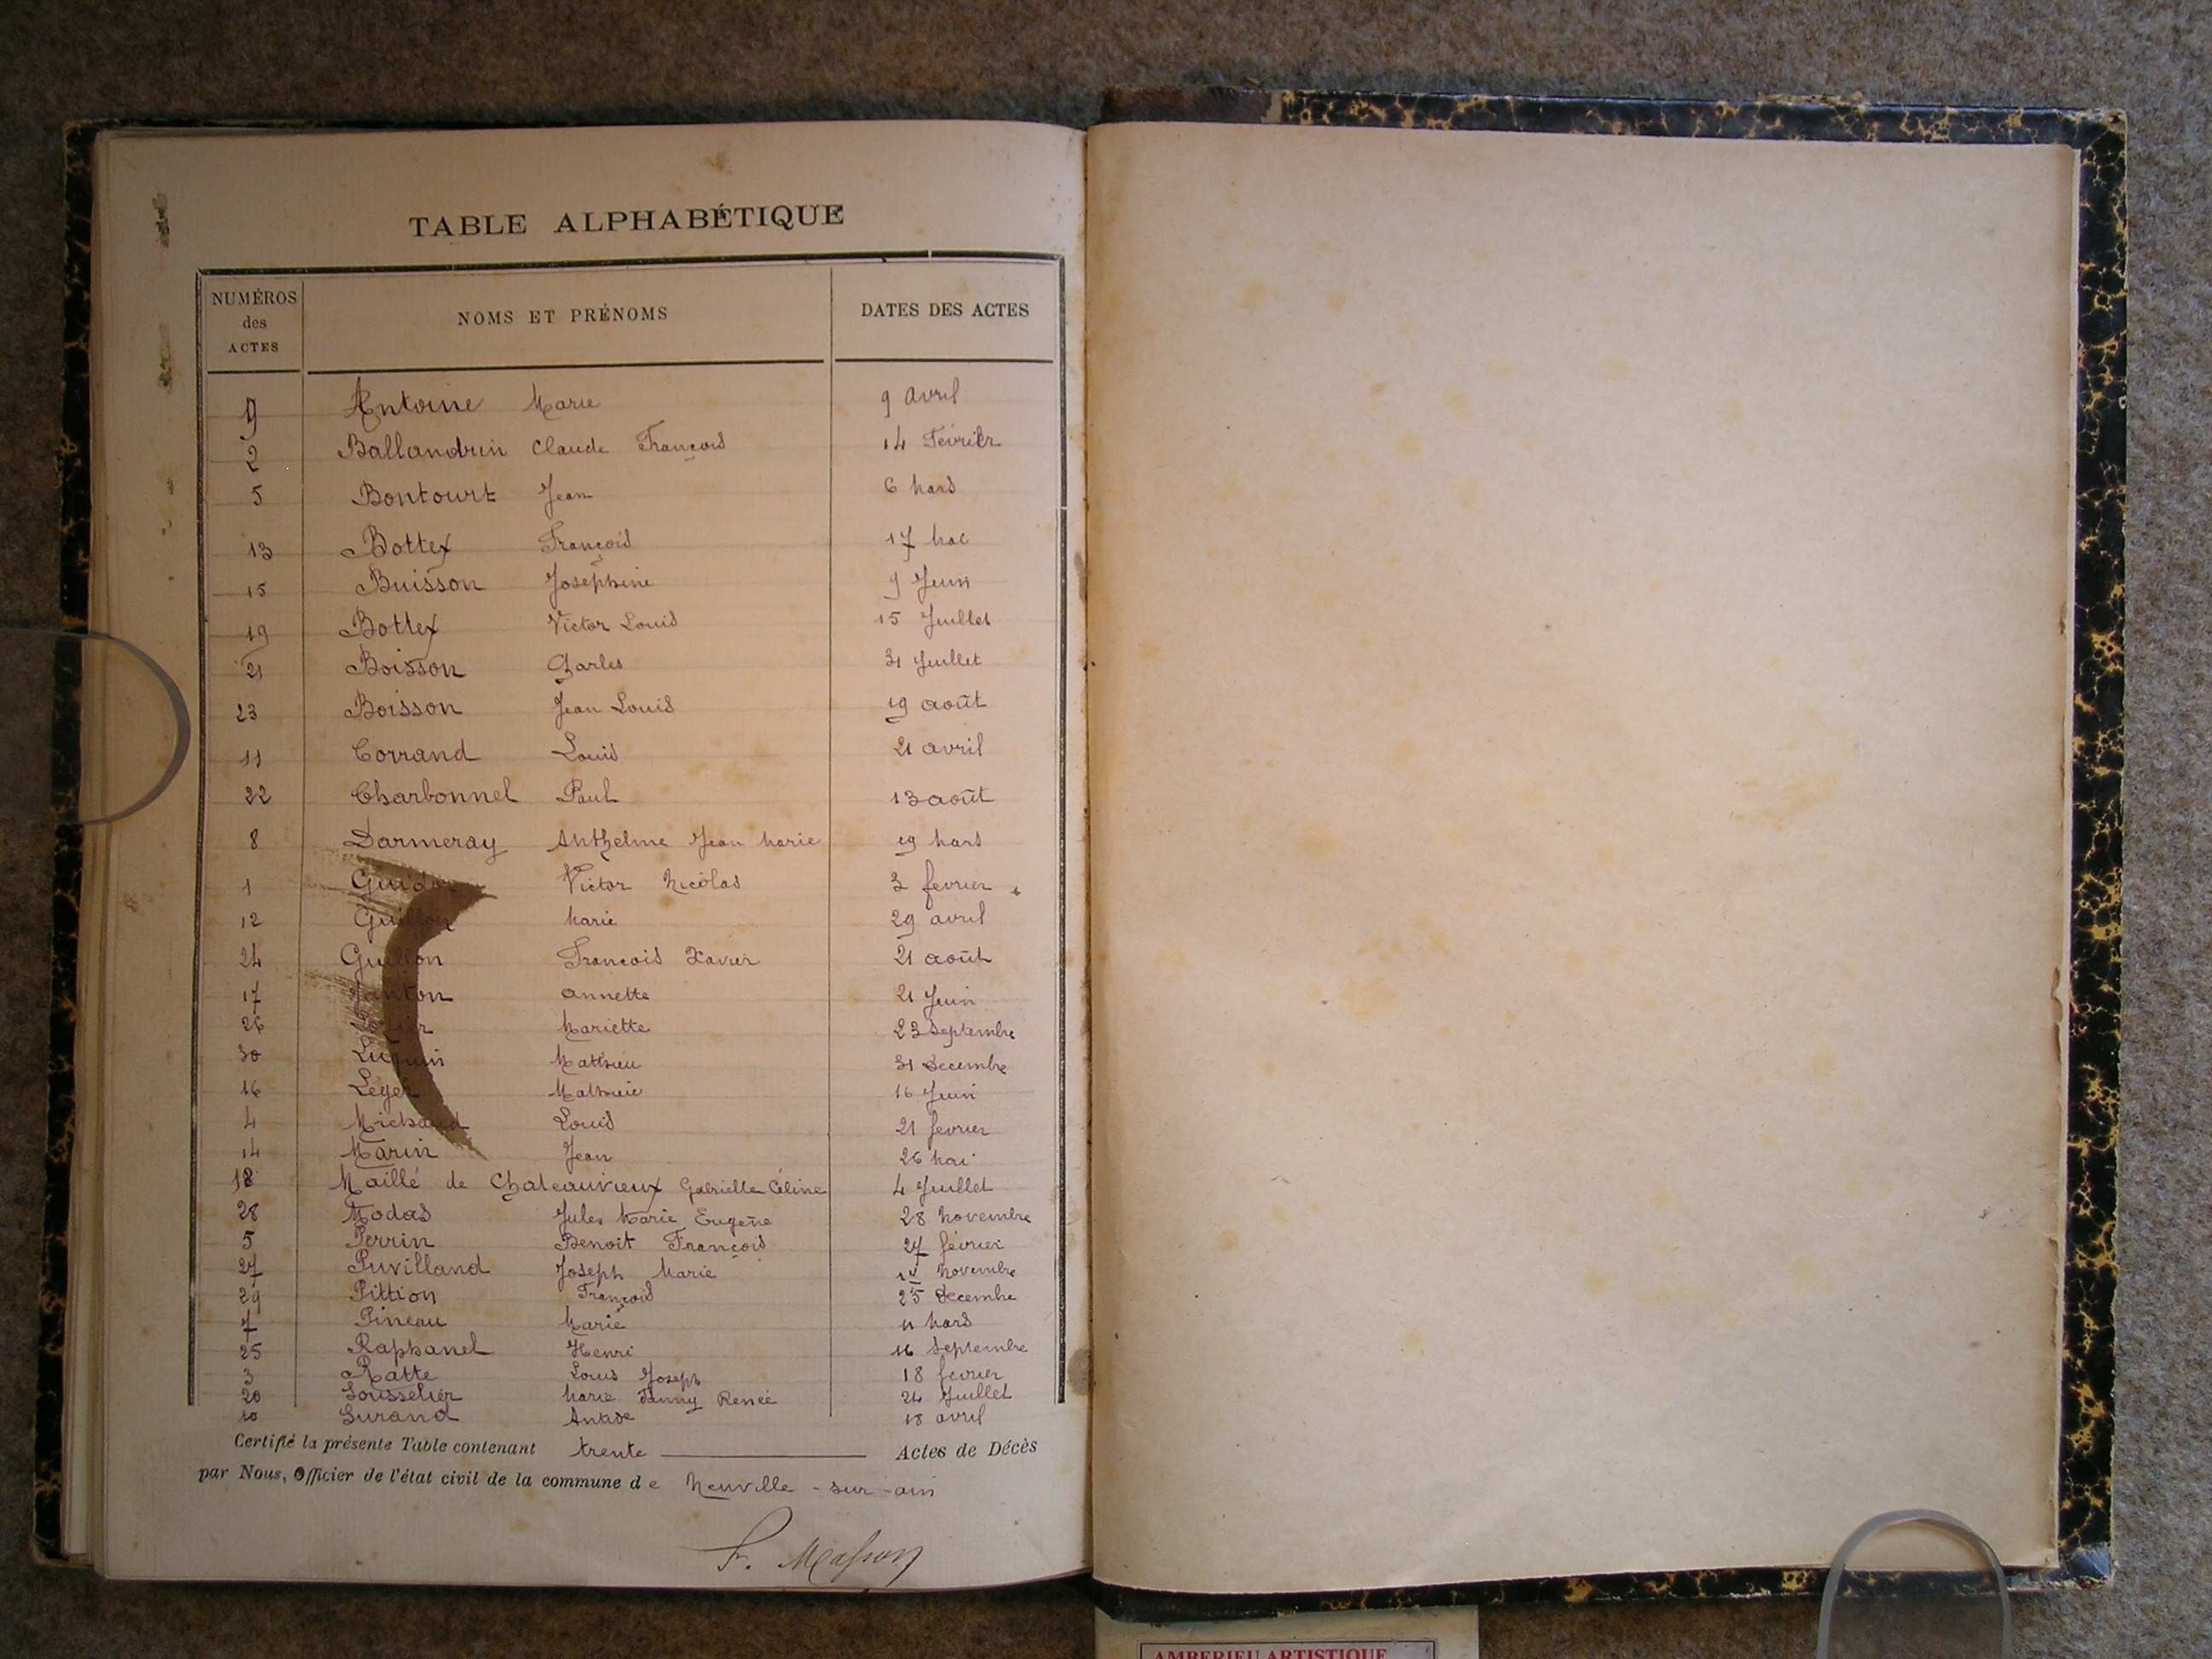 TABLE ALPHABÉTIQUE
NUMÉROS des ACTES NOMS ET PRÉNOMS DATES DES ACTES
9 Antoine Marie 9 Avril
2 Ballandrin Claude François 14 Février
5 Bontourt Jean 6 Mars
13 Bottex François 17 Mai
15 Buisson Joséphine 9 Juin
19 Bottex Victor Louis 15 Juillet
21 Boisson Charles 31 Juillet
23 Boisson Jean Louis 19 août
11 Corrand Louis 21 avril
22 Charbonnel Paul 13 août
8 Darmeray Anthelme Jean Marie 19 Mars
1 Victor Nicolas 3 fevrier
12 Guillon Marie 29 avril
24 Guillon François Xavier 21 août
17 Annette 21 Juin
26 Mariette 23 Septembre
30 Mathieu 31 Decembre
16 Léger 16 Juin
4 Michaud Louis 21 fevrier
14 Marin Jean 26 Mai
18 Maillé de Chateauvieux Gabrielle Céline 4 Juillet
28 Modas Jules Marie Eugène 28 Novembre
5 Perrin Benoit François 27 février
27 Puvilland Joseph Marie 14 Novembre
29 Pittion François 25 Decembre
7 Pineau Marie 11 Mars
25 Raphanel Henri 16 Septembre
3 Ratte Louis Joseph 18 fevrier
20 Sousselier Marie Fanny Renée 24 Juillet
10 Surand 18 avril
Certifié la présente Table contenant trente Actes de Décès
par Nous, Officier de l'état civil de la commune de Neuville-sur-ain
F. Masson
AMBERIEU ARTISTIQUE